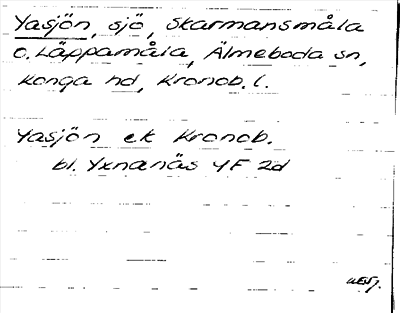 Yasjön, sjö, Skarmansmåla
o. Läppamåla, Älmeboda sn,
Konga hd, Kronob. l.
Yasjön ek Kronob.
bl. Yxnanäs 4F 2d